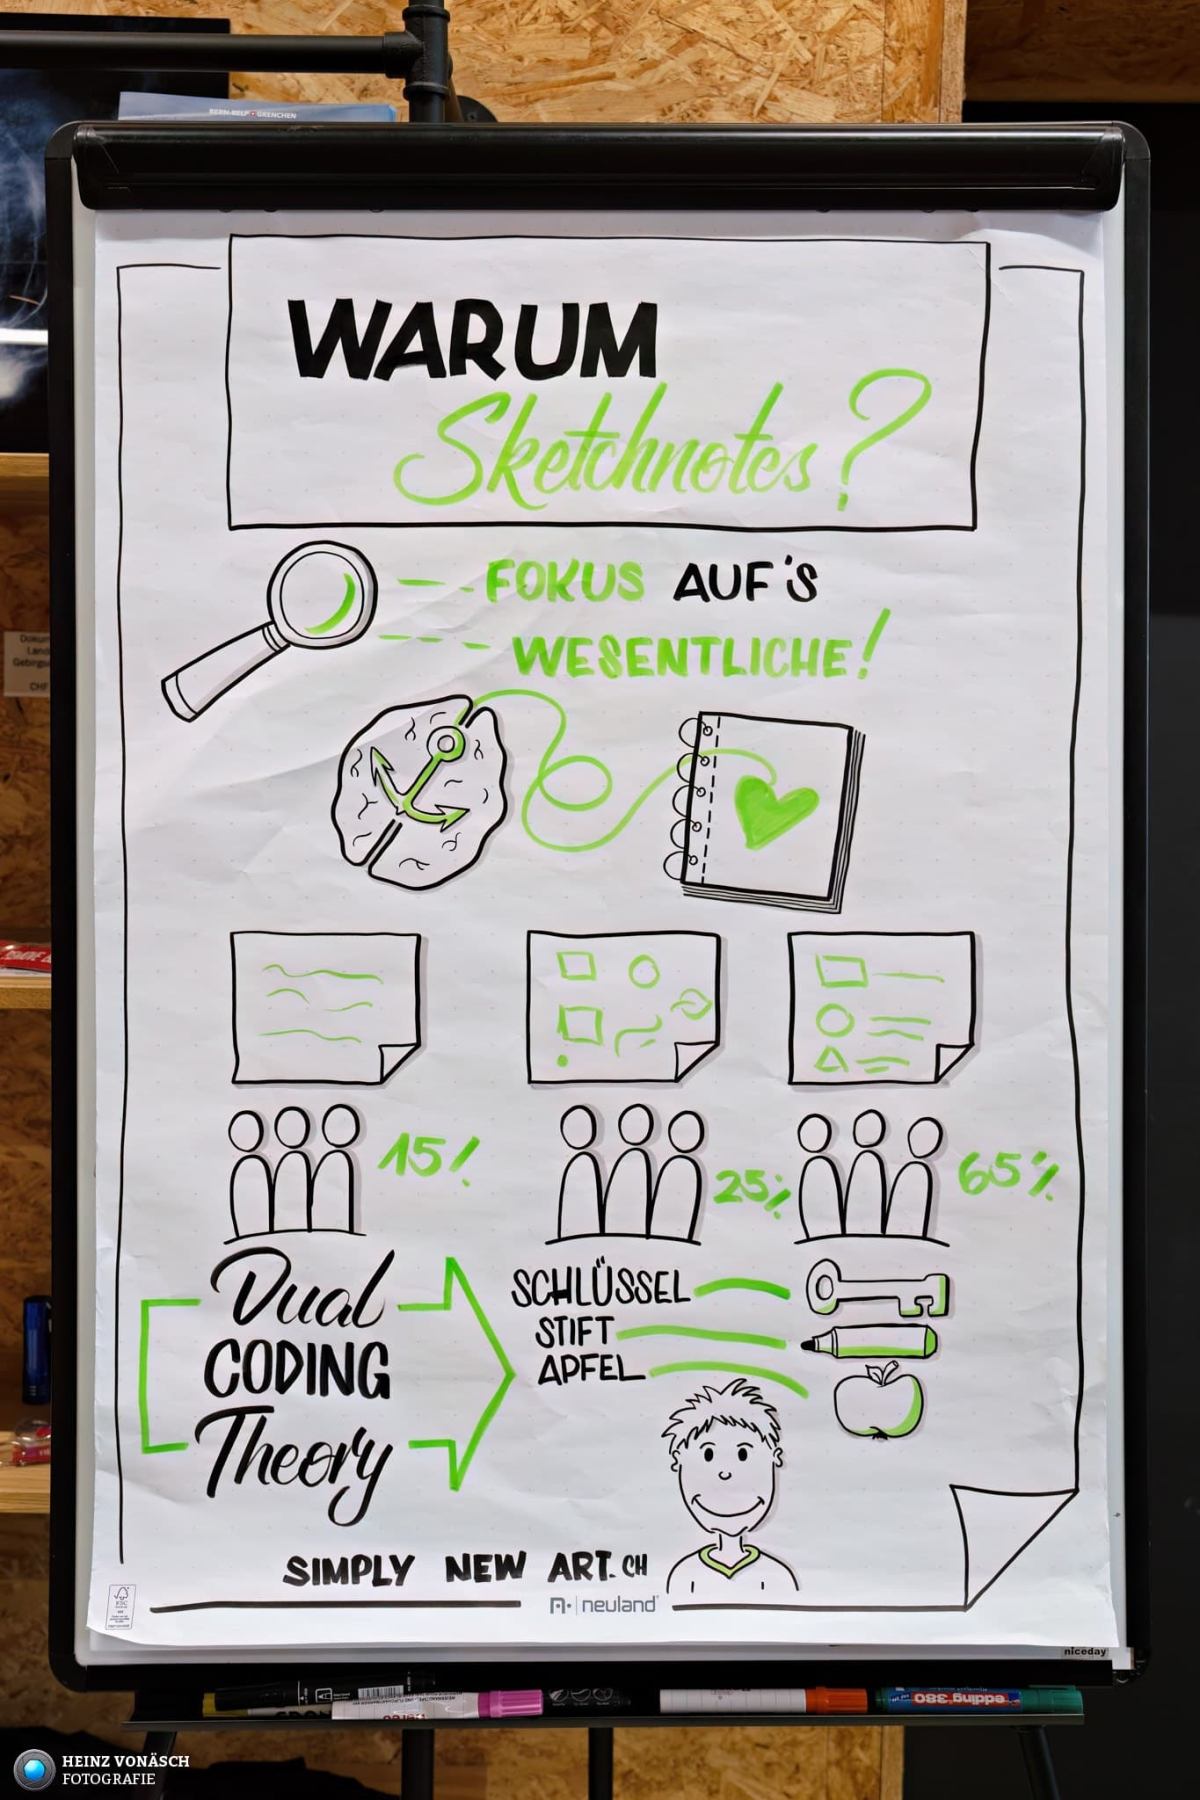 BERN-BELP GRENCHEN
WARUM
Sketchnotes?
FOKUS AUF'S
WESENTLICHE!
15%
25%
65%
Dual
CODING
Theory
SCHLÜSSEL
STIFT
APFEL
SIMPLY NEW ART.CH
neuland
FSC
niceday
edding 380
CHF
HEINZ VONÄSCH
FOTOGRAFIE